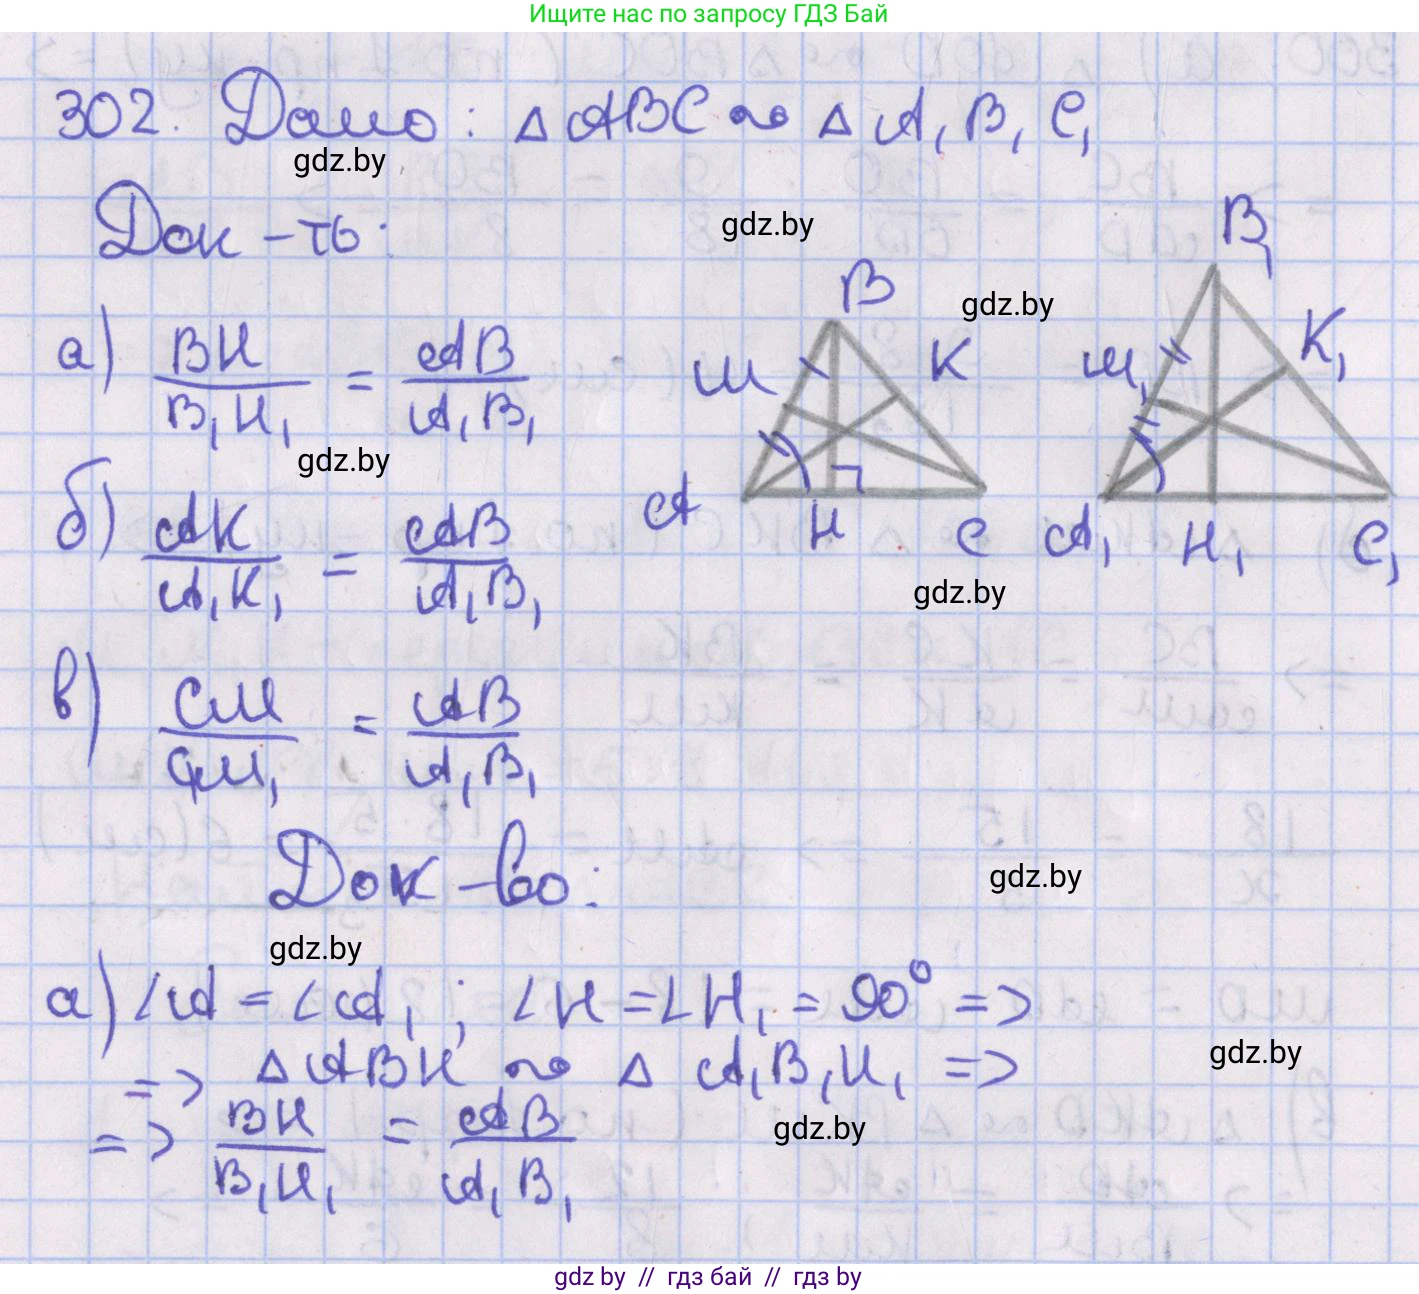 Ищите нас по запросу ГДЗ Бай
302. Дано: △ ABC ∾ △ A₁B₁C₁
gdz.by
Док-ть:
gdz.by
а) BH/B₁H₁ = AB/A₁B₁
gdz.by
б) AK/A₁K₁ = AB/A₁B₁
в) CM/C₁M₁ = AB/A₁B₁
B
gdz.by
M K
A H C
B₁
M₁ K₁
A₁ H₁ C₁
gdz.by
Док-во:
gdz.by
gdz.by
а) ∠A = ∠A₁; ∠H = ∠H₁ = 90° =>
=> △ ABH ∾ △ A₁B₁H₁ =>
gdz.by
=> BH/B₁H₁ = AB/A₁B₁
gdz.by
gdz by // гдз бай // гдз by